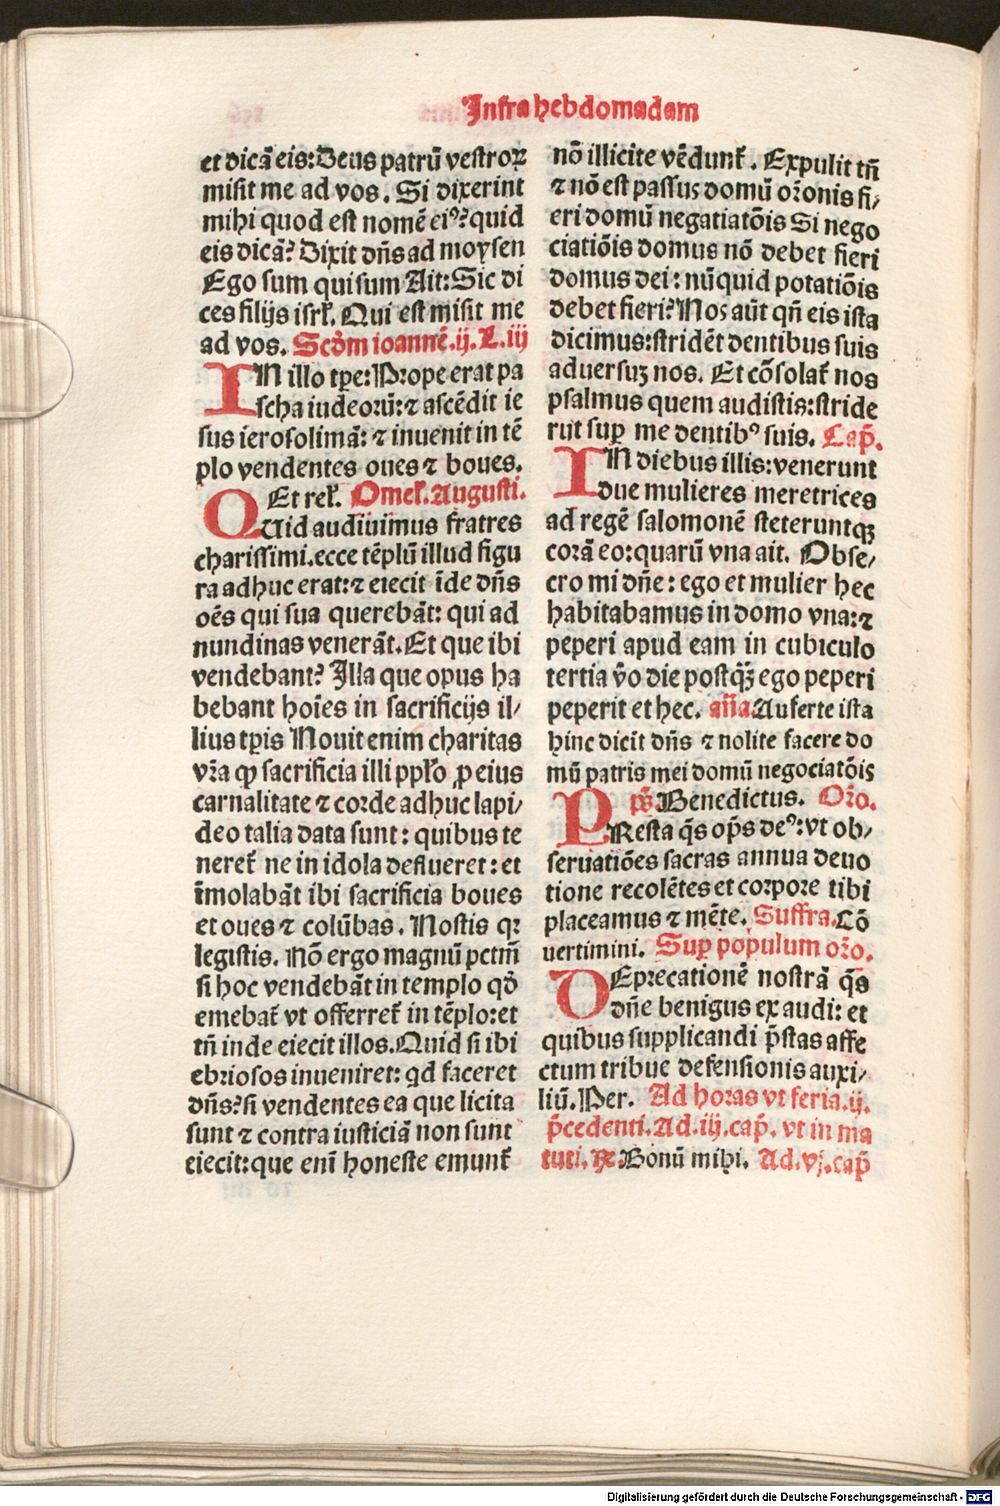 Infra hebdomadam
et dicā eis: Deus patrū vestroꝝ
misit me ad vos. Si dixerint
mihi quod est nomē eiꝰ? quid
eis dicā? Dixit dn̄s ad moysen
Ego sum qui sum Ait: Sic di
ces filijs isrl̄. Qui est misit me
ad vos. Scd̄m ioannē .ij. L. iij
IN illo tp̄e: Prope erat pa
scha iudeorū: ⁊ ascēdit ie
sus ierosolimā: ⁊ inuenit in tē
plo vendentes oues ⁊ boues.
Et rel̄. Omel̄. Augusti.
QUid audiuimus fratres
charissimi. ecce tēplū illud figu
ra adhuc erat: ⁊ eiecit īde dn̄s
oēs qui sua querebāt: qui ad
nundinas venerāt. Et que ibi
vendebant? Illa que opus ha
bebant hoīes in sacrificijs il/
lius tp̄is Nouit enim charitas
vr̄a ꝙ sacrificia illi ppl̄o ꝓ eius
carnalitate ⁊ corde adhuc lapi/
deo talia data sunt: quibus te
neret̄ ne in idola deflueret: et
īmolabāt ibi sacrificia boues
et oues ⁊ colūbas. Nostis qꝛ
legistis. Nō ergo magnū pctm̄
si hoc vendebāt in templo qd̄
emebat̄ vt offerret̄ in tēplo: et
tn̄ inde eiecit illos. Quid si ibi
ebriosos inueniret: qd faceret
dn̄s? si vendentes ea que licita
sunt ⁊ contra iusticiā non sunt
eiecit: que enī honeste emunt̄
nō illicite vēdunt̄. Expulit tn̄
⁊ nō est passus domū or̄onis fi/
eri domū negatiatōis Si nego
ciatiōis domus nō debet fieri
domus dei: nūquid potatiōis
debet fieri? Nos aūt qn̄ eis ista
dicimus: stridēt dentibus suis
aduersuꝫ nos. Et cōsolat̄ nos
psalmus quem audistis: stride
rūt suꝑ me dentibꝰ suis. Cap̄.
IN diebus illis: venerunt
due mulieres meretrices
ad regē salomonē steteruntqꝫ
corā eo: quarū vna ait. Obse/
cro mi dn̄e: ego et mulier hec
habitabamus in domo vna: ⁊
peperi apud eam in cubiculo
tertia v̄o die postqꝫ̄ ego peperi
peperit et hec. an̄a Auferte ista
hinc dicit dn̄s ⁊ nolite facere do
mū patris mei domū negociatōis
ps̄. Benedictus. Or̄o.
PResta q̄s op̄s deꝰ: vt ob/
seruatiōes sacras annua deuo
tione recolētes et corpore tibi
placeamus ⁊ mēte. Suffra. Cō
uertimini. Suꝑ populum or̄o.
DEprecationē nostrā q̄s
dn̄e benignus exaudi: et
quibus supplicandi p̄stas affe
ctum tribue defensionis auxi/
liū. Per. Ad horas vt feria .ij.
p̄cedenti. Ad .iij. cap̄. vt in ma
tuti. ℞ Bonū mihi. Ad .vj. cap̄
Digitalisierung gefördert durch die Deutsche Forschungsgemeinschaft - DFG